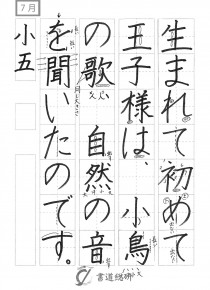 7月
生まれて初めて
王子様は、小鳥
の歌 自然の音
を聞いたのです。
小五